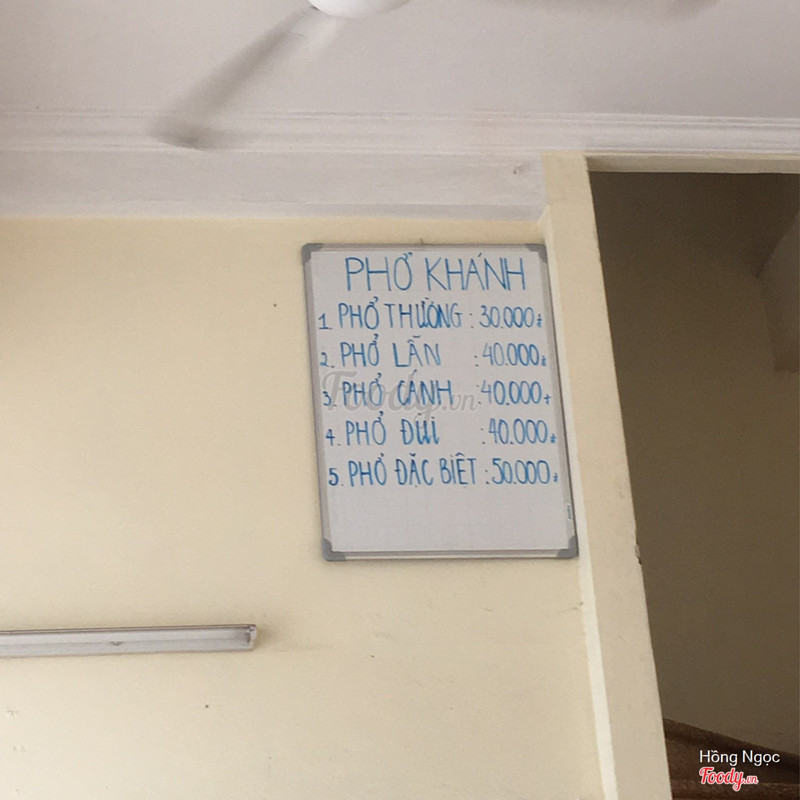 PHỞ KHÁNH
1. PHỞ THƯỜNG : 30.000đ
2. PHỞ LẪN : 40.000đ
3. PHỞ CÁNH : 40.000đ
4. PHỞ ĐÙI : 40.000đ
5. PHỞ ĐẶC BIỆT : 50.000đ
Foody.vn
Hồng Ngọc
Foody.vn